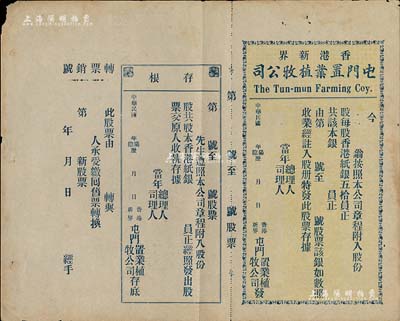 上海陽明拍賣
香港新界
屯門置業植牧公司
The Tun-mun Farming Coy.
今
翁按照本公司章程附入股份
股每股香港紙銀五拾員正
共該本銀 員正
由第 號至 號股票該銀如數
收業經註入股册特發此股票存據
當年 總理人
司理人
中華民國 年 月 日
香港新界 屯門置業植牧公司發
第 號至 號股票
存根
第 號至 號股票
先生遵照本公司章程附入股份
股共股本香港紙銀 員正經照發出股
票交原人收執存據
當年 總理人
司理人
中華民國 年 月 日
香港新界 屯門置業植牧公司存底
轉票銷號
此股票由 轉與
人承受繳囘舊票轉換
第 新股票
年 月 日 經手